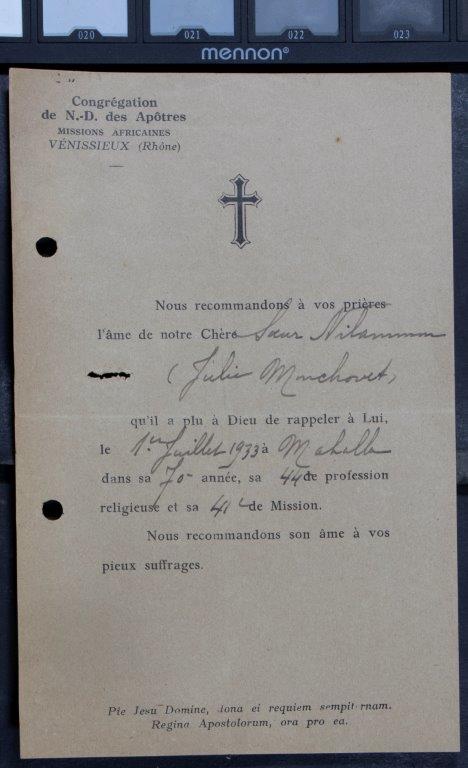 020 021 022 023
mennon®
Congrégation
de N.-D. des Apôtres
MISSIONS AFRICAINES
VÉNISSIEUX (Rhône)
Nous recommandons à vos prières
l'âme de notre Chère Sœur
(Julie
qu'il a plu à Dieu de rappeler à Lui,
le 1er Juillet 1933 à Mahalla
dans sa 70e année, sa 44 de profession
religieuse et sa 41e de Mission.
Nous recommandons son âme à vos
pieux suffrages.
Pie Jesu Domine, dona ei requiem sempiternam.
Regina Apostolorum, ora pro ea.